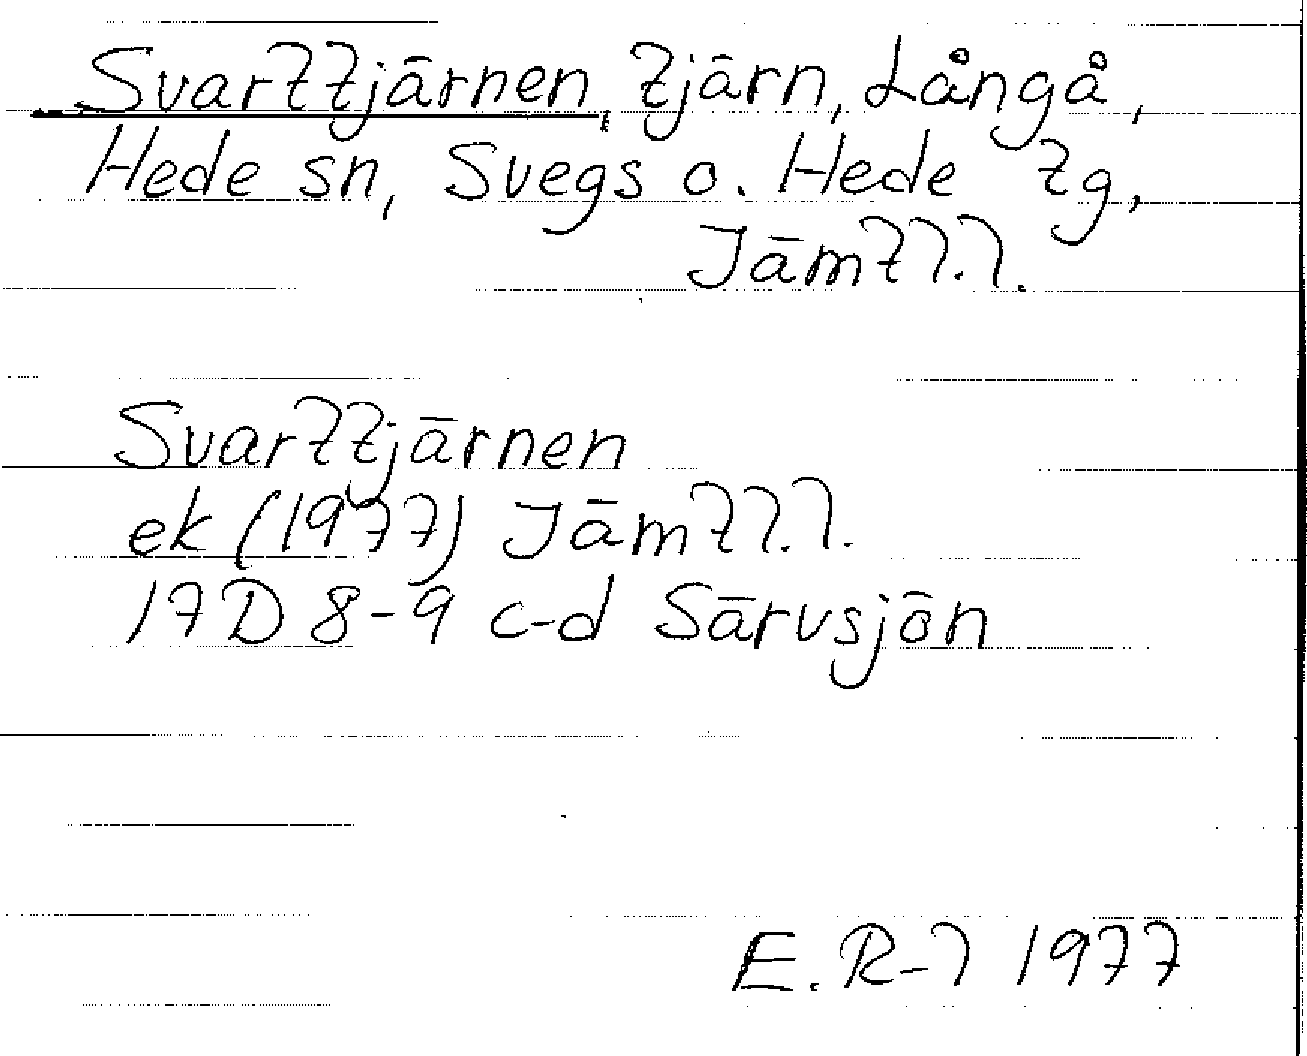 Svarttjärnen, tjärn, Långå,
Hede sn, Svegs o. Hede tg,
Jämtl.l.
Svarttjärnen
ek (1977) Jämtl.l.
17D 8-9 c-d Särvsjön
E. R-l 1977